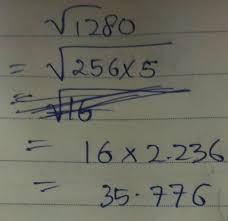 √1280
= √256×5
= √16
= 16×2.236
= 35.776